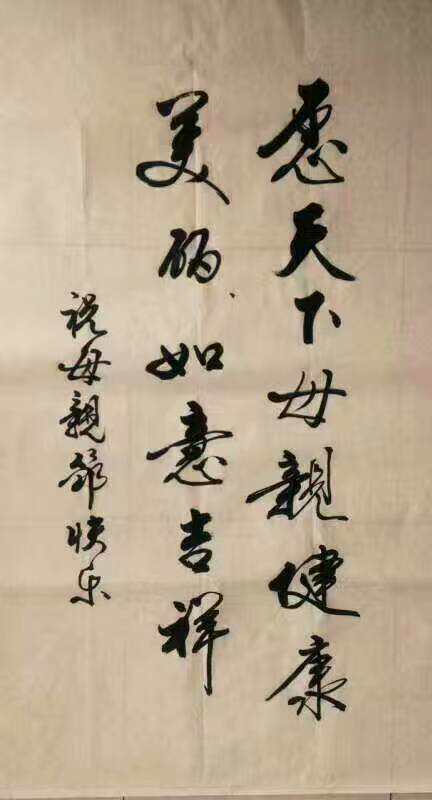 愿天下母親健康
美丽如意吉祥
祝母親節快乐